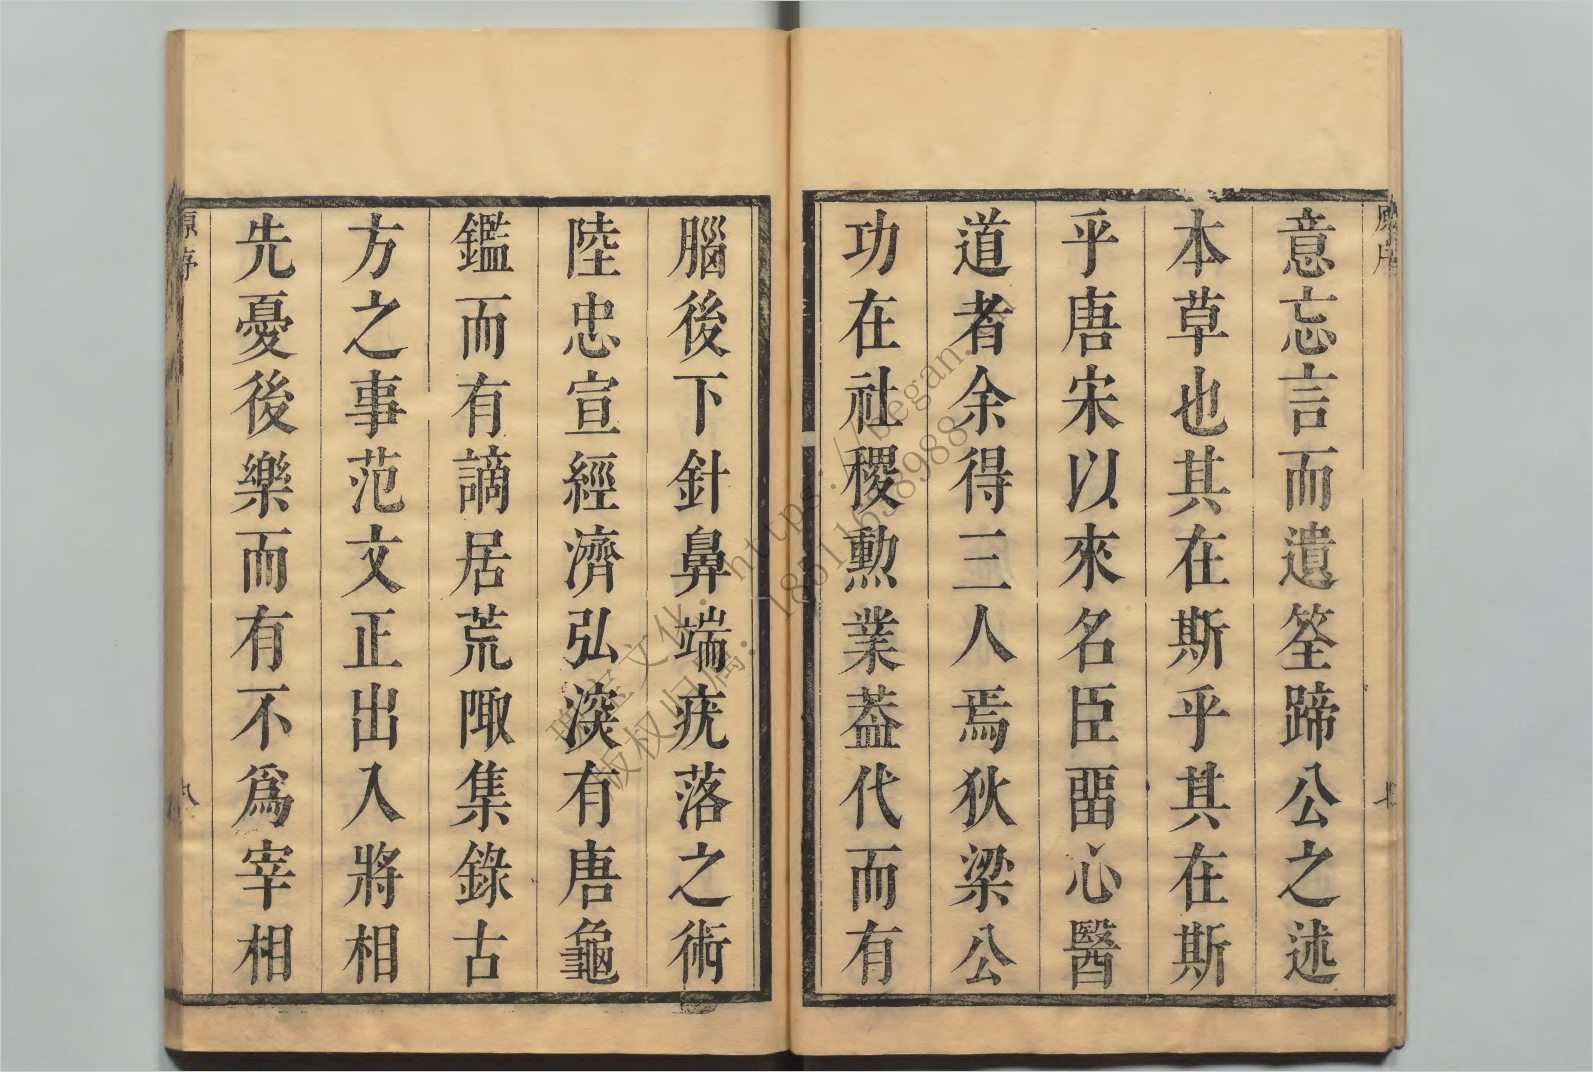 原序
意忘言而遺筌蹄公之述
本草也其在斯乎其在斯
乎唐宋以來名臣畱心醫
道者余得三人焉狄梁公
功在社稷勲業葢代而有
腦後下針鼻端疣落之術
陸忠宣經濟弘深有唐龜
鑑而有謫居荒陬集錄古
方之事范文正出入將相
先憂後樂而有不為宰相
原序
八
文化：https://began.
版权归属：18611638988